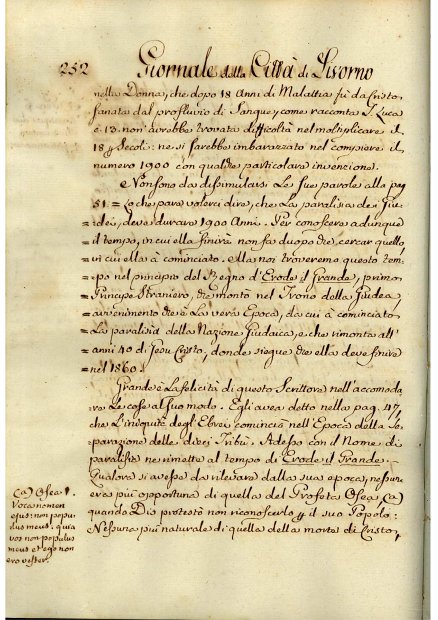 252 Giornale della Città di Livorno
nella Donna, che dopo 18 Anni di Malattia fù da Cristo
sanata dal profluvio di Sangue, come racconta S. Luca
c. 13. non avrebbe trovata difficoltà nel moltiplicare il
18 p Secoli: ne si sarebbe imbarazzato nel compiere il
numero 1900 con qualche particolare invenzione.
Non sono da dissimularsi Le sue parole alla pag
51. = Ciò che pare volerci dire, che La paralisia de Giu-
= dei, deve durare 1900 Anni. Per conoscere adunque
= il tempo, in cui ella finirà non fa duopo che cercar quello,
= in cui ella à cominciato. Ma noi troveremo questo tem-
= po nel principio del Regno d'Erode il Grande, primo
= Principe Straniero, che montò nel Trono della Giudea
= avvenimento che è La vera Epoca, da cui à cominciato
= La paralisia della Nazione Giudaica, e che rimonta all'
= anni 40 di Gesù Cristo, donde siegue che ella deve finire
= nel 1860.
Grande è La felicità di questo Scrittore nell'accomoda
re Le cose al suo modo. Egli avea detto nella pag. 47,
che L'iniquità degl'Ebrei cominciò nell'Epoca della Se-
parazione delle dieci Tribù. Adesso con il Nome di
paralisia ne rimette al tempo di Erode il Grande.
Qualora si avesse da rilevare dalla sua epoca, nessun'
era più opportuna di quella del Profeta Osea (a)
quando Dio protestò non riconoscerlo p il suo Popolo:
Nessuna più naturale di quella della morte di Cristo,
(a) Osea 1.
Voca nomen
ejus: non popu-
lus meus: quia
vos non populus
meus et ego non
ero vester.